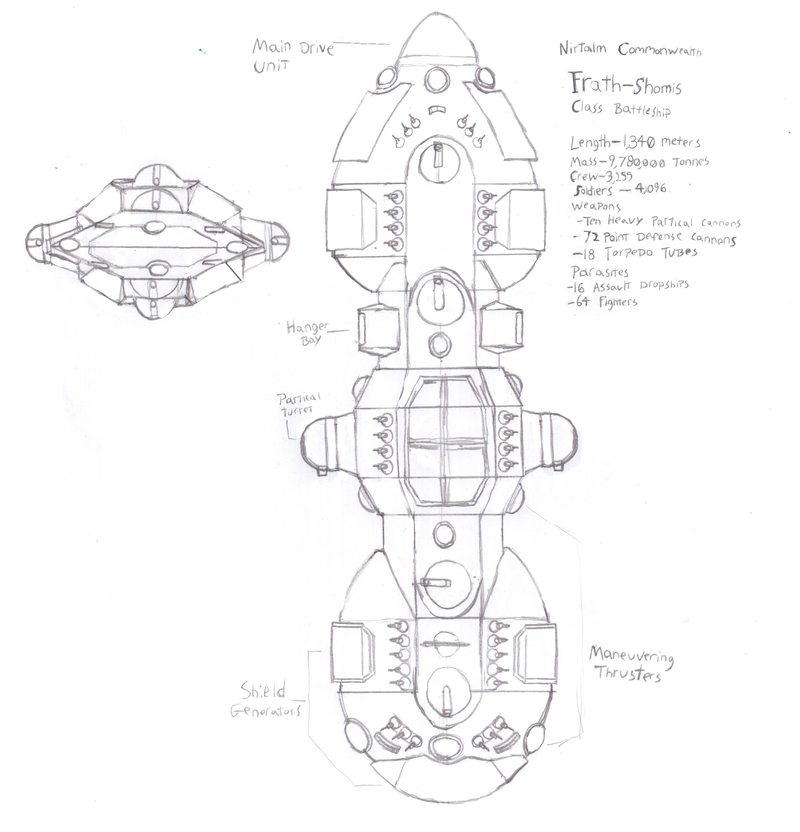 Main Drive
Unit
Nirtalm Commonwealth
Frath-Shomis
Class Battleship
Length-1,340 meters
Mass-9,780,000 Tonnes
Crew-3,255
Soldiers - 4,096.
Weapons
-Ten Heavy Partical Cannons
-72 Point Defense Cannons
-18 Torpedo Tubes
Parasites
-16 Assault Dropships
-64 Fighters
Hanger
Bay
Partical
Turret
Maneuvering
Thrusters
Shield
Generators